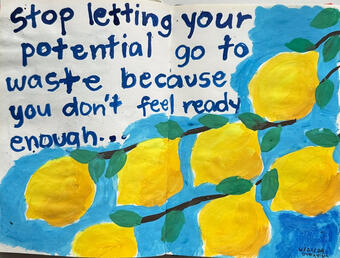 Stop letting your
potential go to
waste because
you don't feel ready
enough...